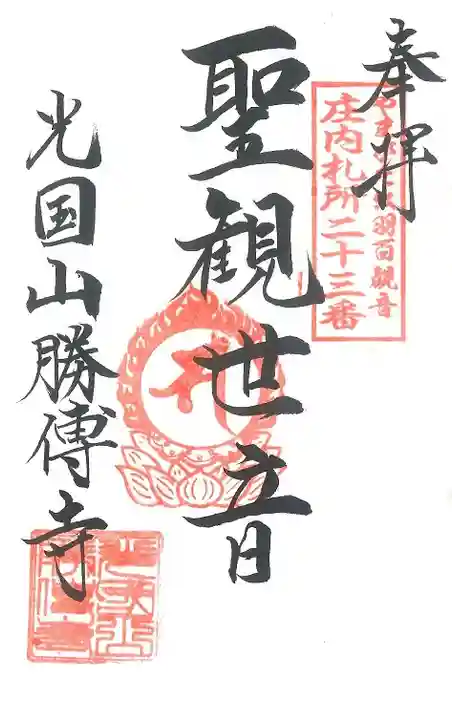 奉拝
庄内札所二十三番
聖観世音
光国山勝傳寺